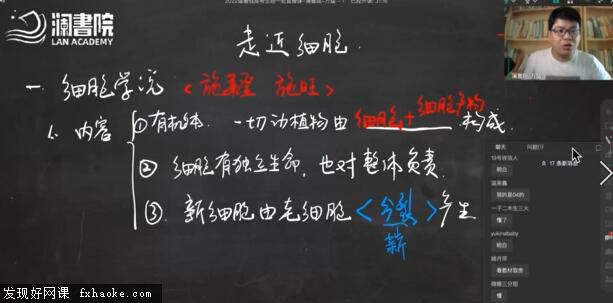 澜書院
LAN ACADEMY
走近细胞.
一 细胞学说 <施莱登 施旺>
1. 内容
①有机体. 一切动植物由细胞+细胞产物构成.
② 细胞有独立生命, 也对整体负责.
③. 新细胞由老细胞<分裂>产生
聊天
问题(1)
17 条新消息
明白
温家鑫
我的是04的
一子二木生三火
懂了
yukinababy
明白
姚丹蒂
看教材取舍
微糖三分甜
懂
发现好网课 fxhaoke.com